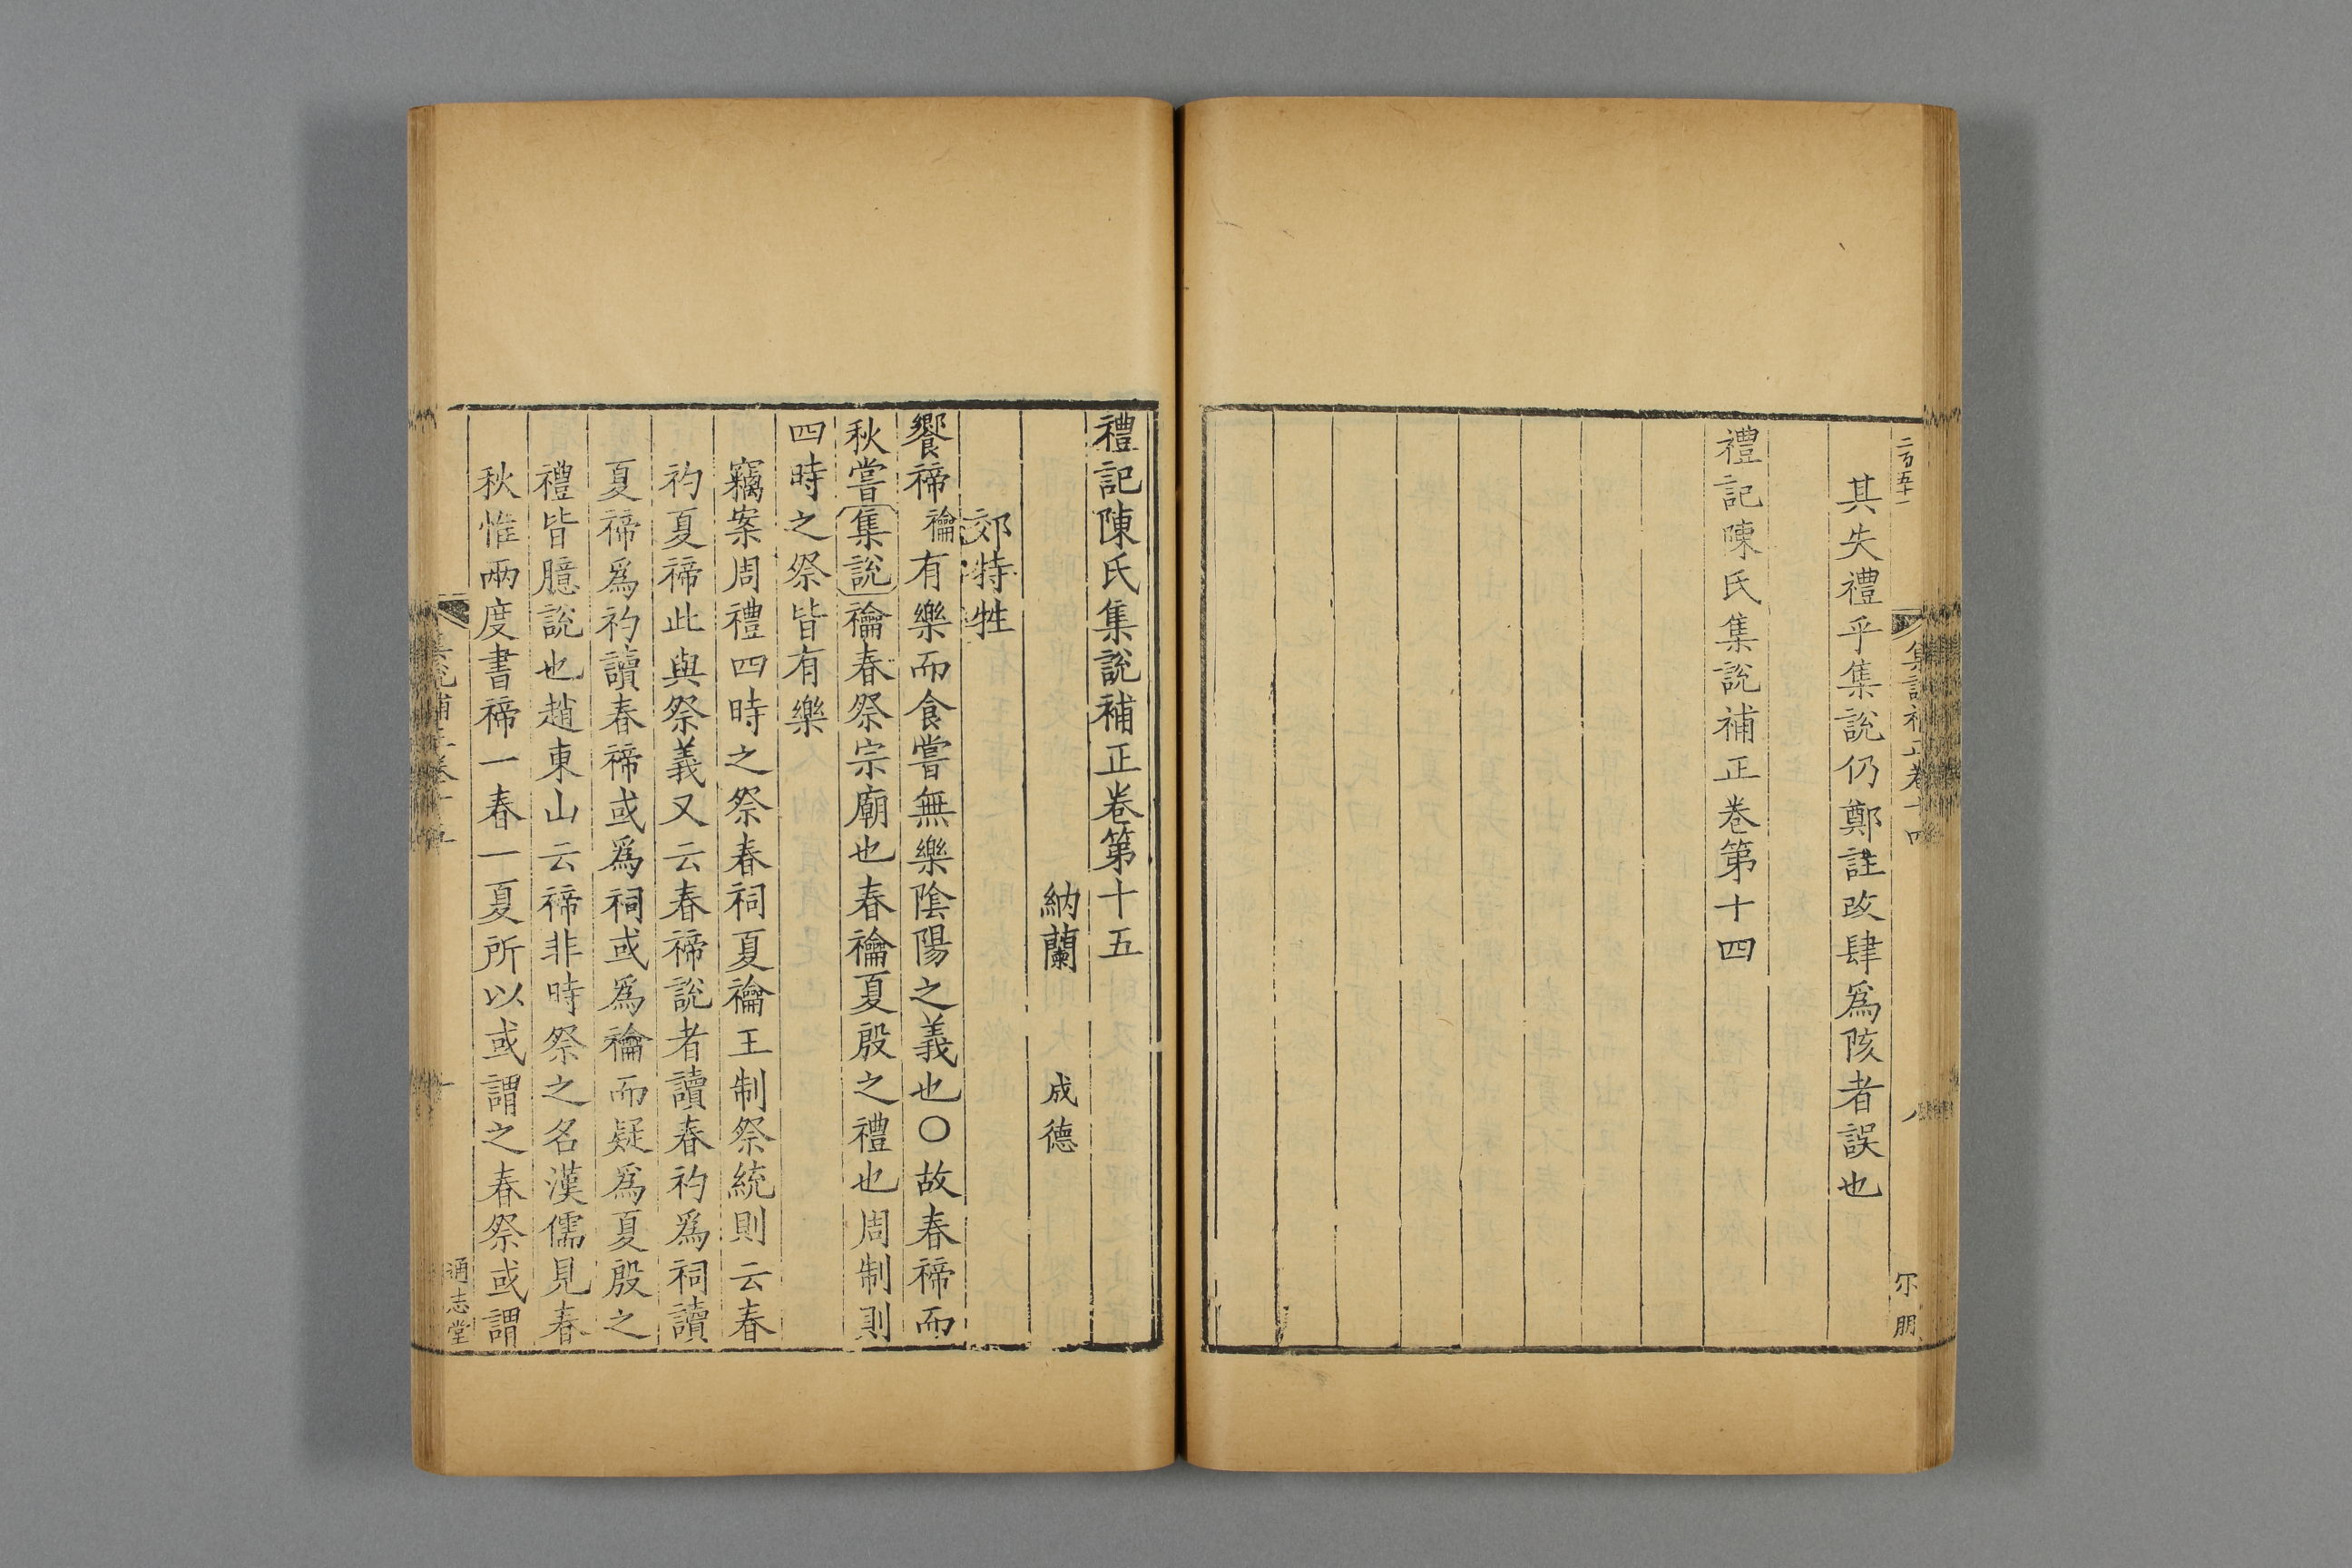 二百五十一
集說補正卷十四
八
尔朋
其失禮乎集說仍鄭註改肆爲陔者誤也
禮記陳氏集說補正卷第十四
禮記陳氏集說補正卷第十五
納蘭 成德
郊特牲
饗禘禴有樂而食嘗無樂陰陽之義也○故春禘而
秋嘗集說禴春祭宗廟也春禴夏殷之禮也周制則
四時之祭皆有樂
竊案周禮四時之祭春祠夏禴王制祭統則云春
礿夏禘此與祭義又云春禘說者讀春礿爲祠讀
夏禘爲礿讀春禘或爲祠或爲禴而疑爲夏殷之
禮皆臆說也趙東山云禘非時祭之名漢儒見春
秋惟兩度書禘一春一夏所以或謂之春祭或謂
集說補正卷十五
一
通志堂